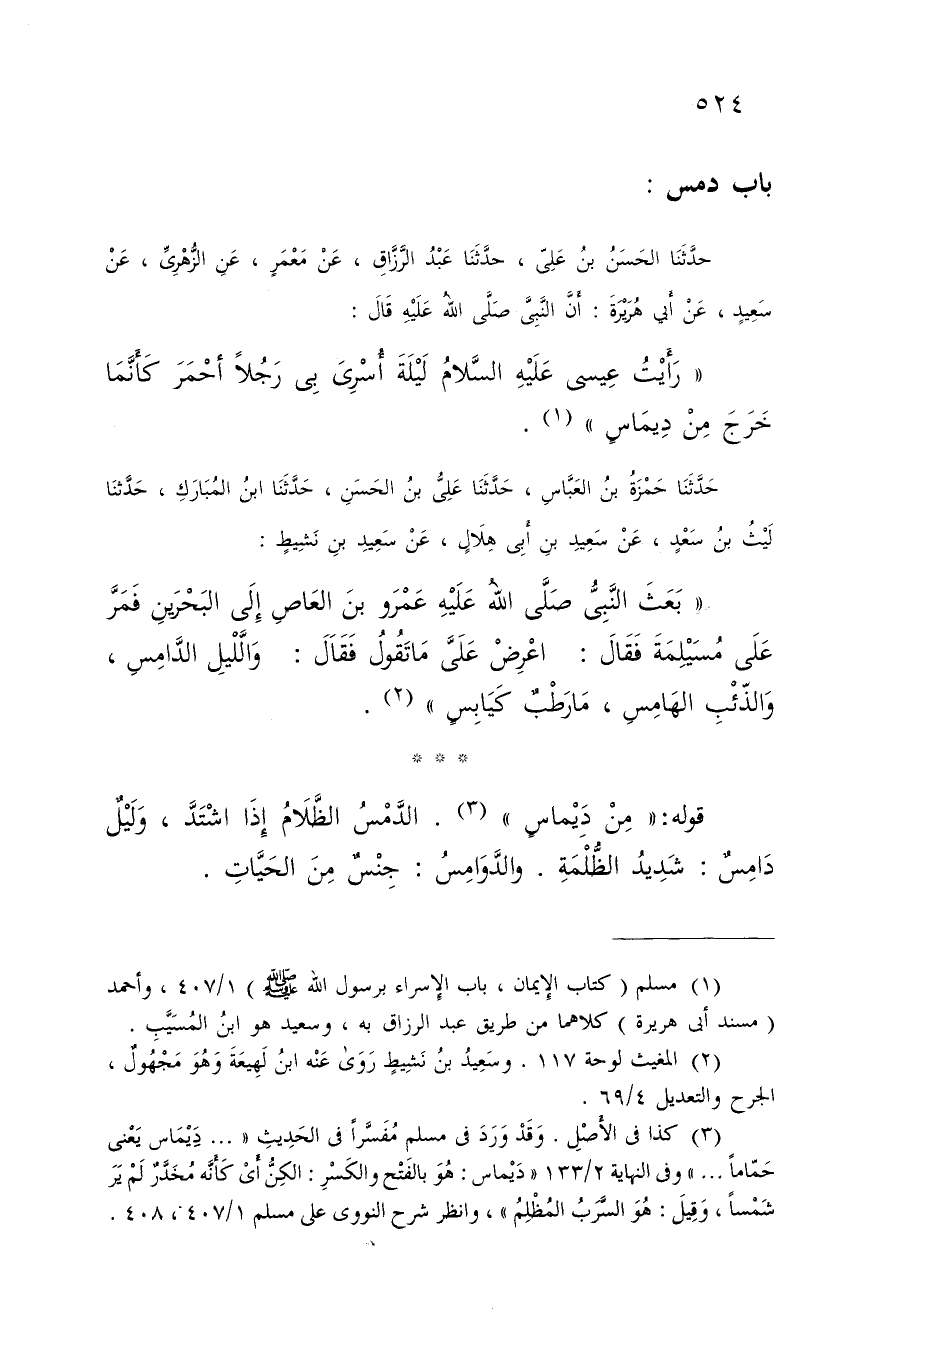 ٥٢٤
باب دمس :
حدَّثَنَا الحَسَنُ بنُ عَلِىّ ، حدَّثَنَا عَبْدُ الرَّزَّاقِ ، عَنْ مَعْمَرٍ ، عَنِ الزُّهْرِىِّ ، عَنْ
سَعِيدٍ ، عَنْ أَبي هُرَيْرَةَ : أَنَّ النَّبِىَّ صَلَّى اللهُ عَلَيْهِ قَالَ :
« رَأَيْتُ عِيسى عَلَيْهِ السَّلامُ لَيْلَةَ أُسْرِىَ بِى رَجُلاً أَحْمَرَ كَأَنَّمَا
خَرَجَ مِنْ دِيمَاسٍ » (١) .
حَدَّثَنَا حَمْزَةُ بنُ العَبَّاسِ ، حَدَّثَنَا عَلِىُّ بنُ الحَسَنِ ، حَدَّثَنَا ابنُ المُبَارَكِ ، حَدَّثنَا
لَيْثُ بنُ سَعْدٍ ، عَنْ سَعِيدِ بنِ أَبِى هِلَالٍ ، عَنْ سَعِيدِ بنِ نَشِيطٍ :
« بَعَثَ النَّبِىُّ صَلَّى اللهُ عَلَيْهِ عَمْرَو بنَ العَاصِ إِلَى البَحْرَينِ فَمَرَّ
عَلَى مُسَيْلِمَةَ فَقَالَ : اعْرِضْ عَلَىَّ مَاتَقُولُ فَقَالَ : وَالَّليلِ الدَّامِسِ ،
وَالذِّئْبِ الهَامِسِ ، مَارَطْبٌ كَيَابِسٍ » (٢) .
* * *
قوله: « مِنْ دَِيْماسٍ » (٣) . الدَّمْسُ الظَّلَامُ إِذَا اشْتَدَّ ، وَلَيْلٌ
دَامِسٌ : شَدِيدُ الظُّلْمَةِ . والدَّوَامِسُ : جِنْسٌ مِنَ الحَيَّاتِ .
(١) مسلم ( كتاب الإيمان ، باب الإسراء برسول الله ﷺ ) ٤٠٧/١ ، وأحمد
( مسند أبى هريرة ) كلاهما من طريق عبد الرزاق به ، وسعيد هو ابنُ المُسَيَّبِ .
(٢) المغيث لوحة ١١٧ . وسَعِيدُ بنُ نَشِيطٍ رَوَىٰ عَنْه ابنُ لَهِيعَةَ وَهُوَ مَجْهُولٌ ،
الجرح والتعديل ٦٩/٤ .
(٣) كذا فى الأَصْلِ . وَقَدْ وَرَدَ فى مسلم مُفَسَّراً فى الحَدِيثِ « ... دَِيْمَاس يَعْنى
حَمّاماً ... » وفى النهاية ١٣٣/٢ « دَيْماس : هُوَ بالفَتْح والكَسْرِ : الكِنُّ أىْ كَأَنَّه مُخَدَّرٌ لَمْ يَرَ
شَمْساً ، وَقِيلَ : هُوَ السَّرَبُ المُظْلِمُ » ، وانظر شرح النووى على مسلم ٤٠٧/١ ، ٤٠٨ .